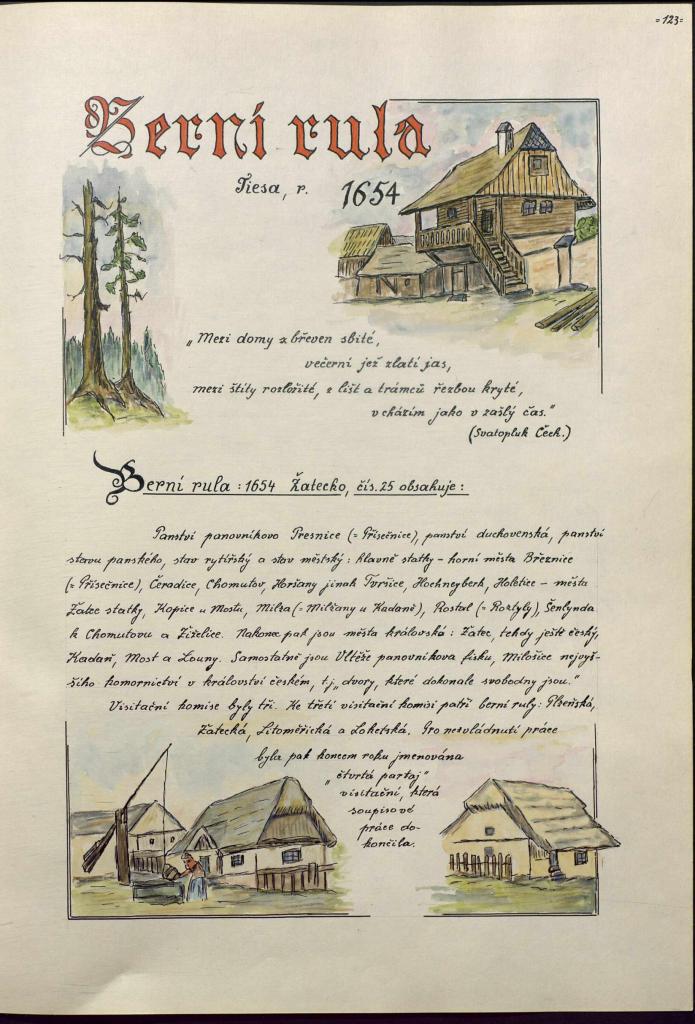 =123=
Berní rula
Tiesa, r. 1654
„Mezi domy z břeven sbité,
večerní jež zlatí jas,
mezi štíty rozložité, z lišt a trámců řezbou kryté,
vcházím jako v zašlý čas."
(Svatopluk Čech.)
Berní rula : 1654 Žatecko, čís. 25 obsahuje :
Panství panovníkovo Presnice (= Přísečnice), panství duchovenská, panství
stavu panského, stav rytířský a stav městský : hlavně statky - horní města Březnice
(= Přísečnice), Čeradice, Chomutov, Horšany jinak Tvršice, Hochneyberk, Holetice - města
Žatec statky, Kopice u Mostu, Milza (= Milžany u Kadaně), Rostal (= Roztyly), Šenlynda
k Chomutovu a Žiželice. Nakonec pak jsou města královská : Žatec, tehdy ještě český,
Kadaň, Most a Louny. Samostatně jsou Vltéže panovníkova fisku, Milošice nejvyš-
šího komornictví v království českém, t.j. „dvory, které dokonale svobodny jsou."
Visitační komise byly tři. Ke třetí visitační komisi patří berní ruly: Plzeňská,
Žatecká, Litoměřická a Loketská. Pro nezvládnutí práce
byla pak koncem roku jmenována
„čtvrtá partaj"
visitační, která
soupisové
práce do-
končila.